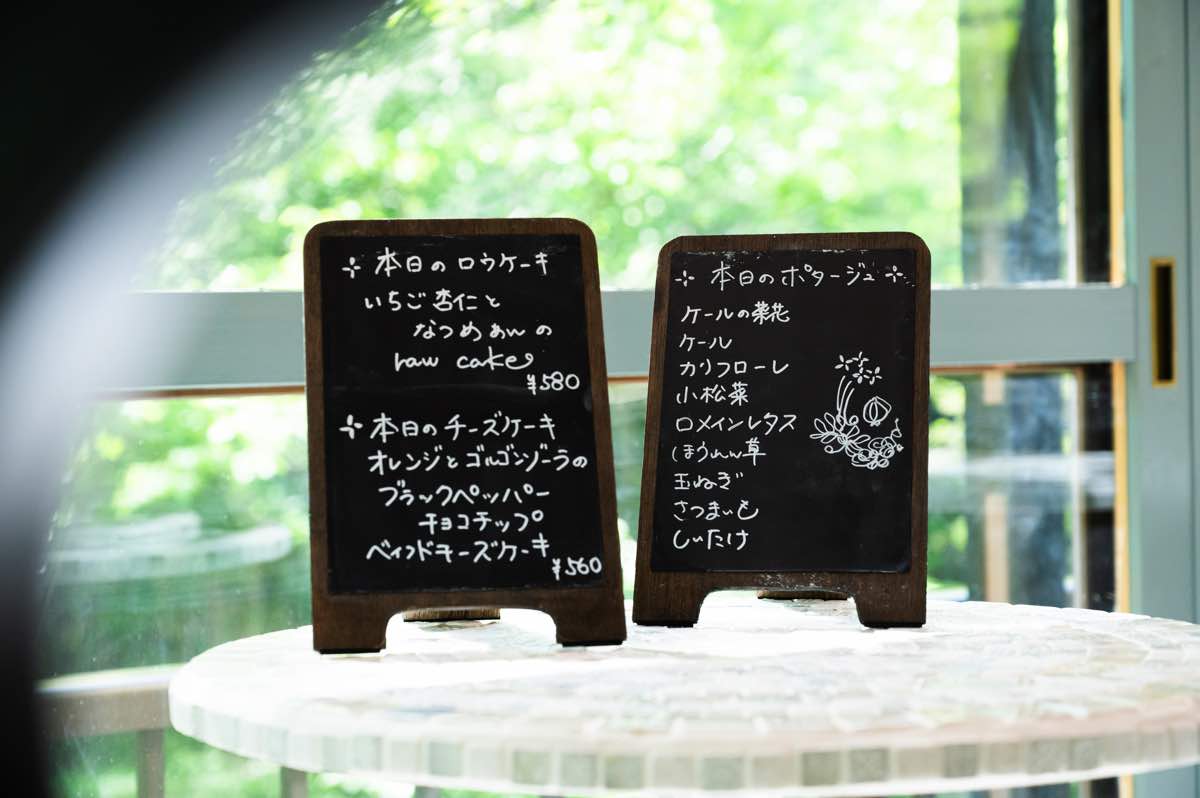 本日のロウケーキ
いちご杏仁と
なつめあんの
raw cake
¥580
本日のチーズケーキ
オレンジとゴルゴンゾーラの
ブラックペッパー
チョコチップ
ベイクドチーズケーキ
¥560
本日のポタージュ
ケールの菜花
ケール
カリフローレ
小松菜
ロメインレタス
ほうれん草
玉ねぎ
さつまいも
しいたけ